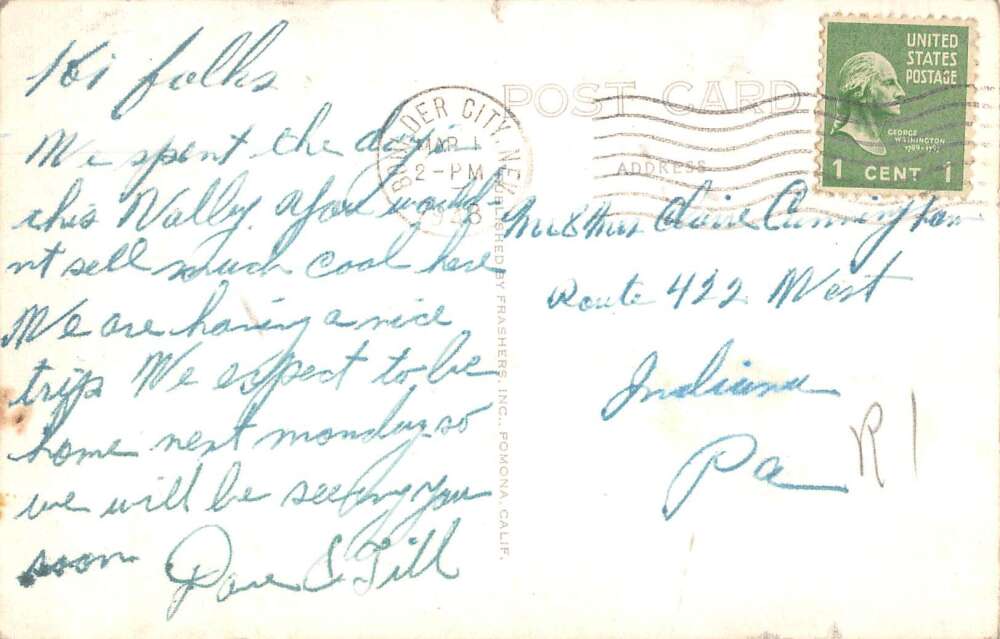 Hi folks
We spent the day in
this Valley. You would
nt sell much coal here
We are having a nice
trip We expect to be
home next monday so
we will be seeing you
soon
& Till
BOULDER CITY, NEV.
MAR 1
2-PM
POST CARD
ADDRESS
UNITED
STATES
POSTAGE
GEORGE
WASHINGTON
1789-1797
1 CENT 1
Mr & Mrs Cunningham
Route 422 West
Indiana
Pa
R1
PUBLISHED BY FRASHERS, INC., POMONA, CALIF.